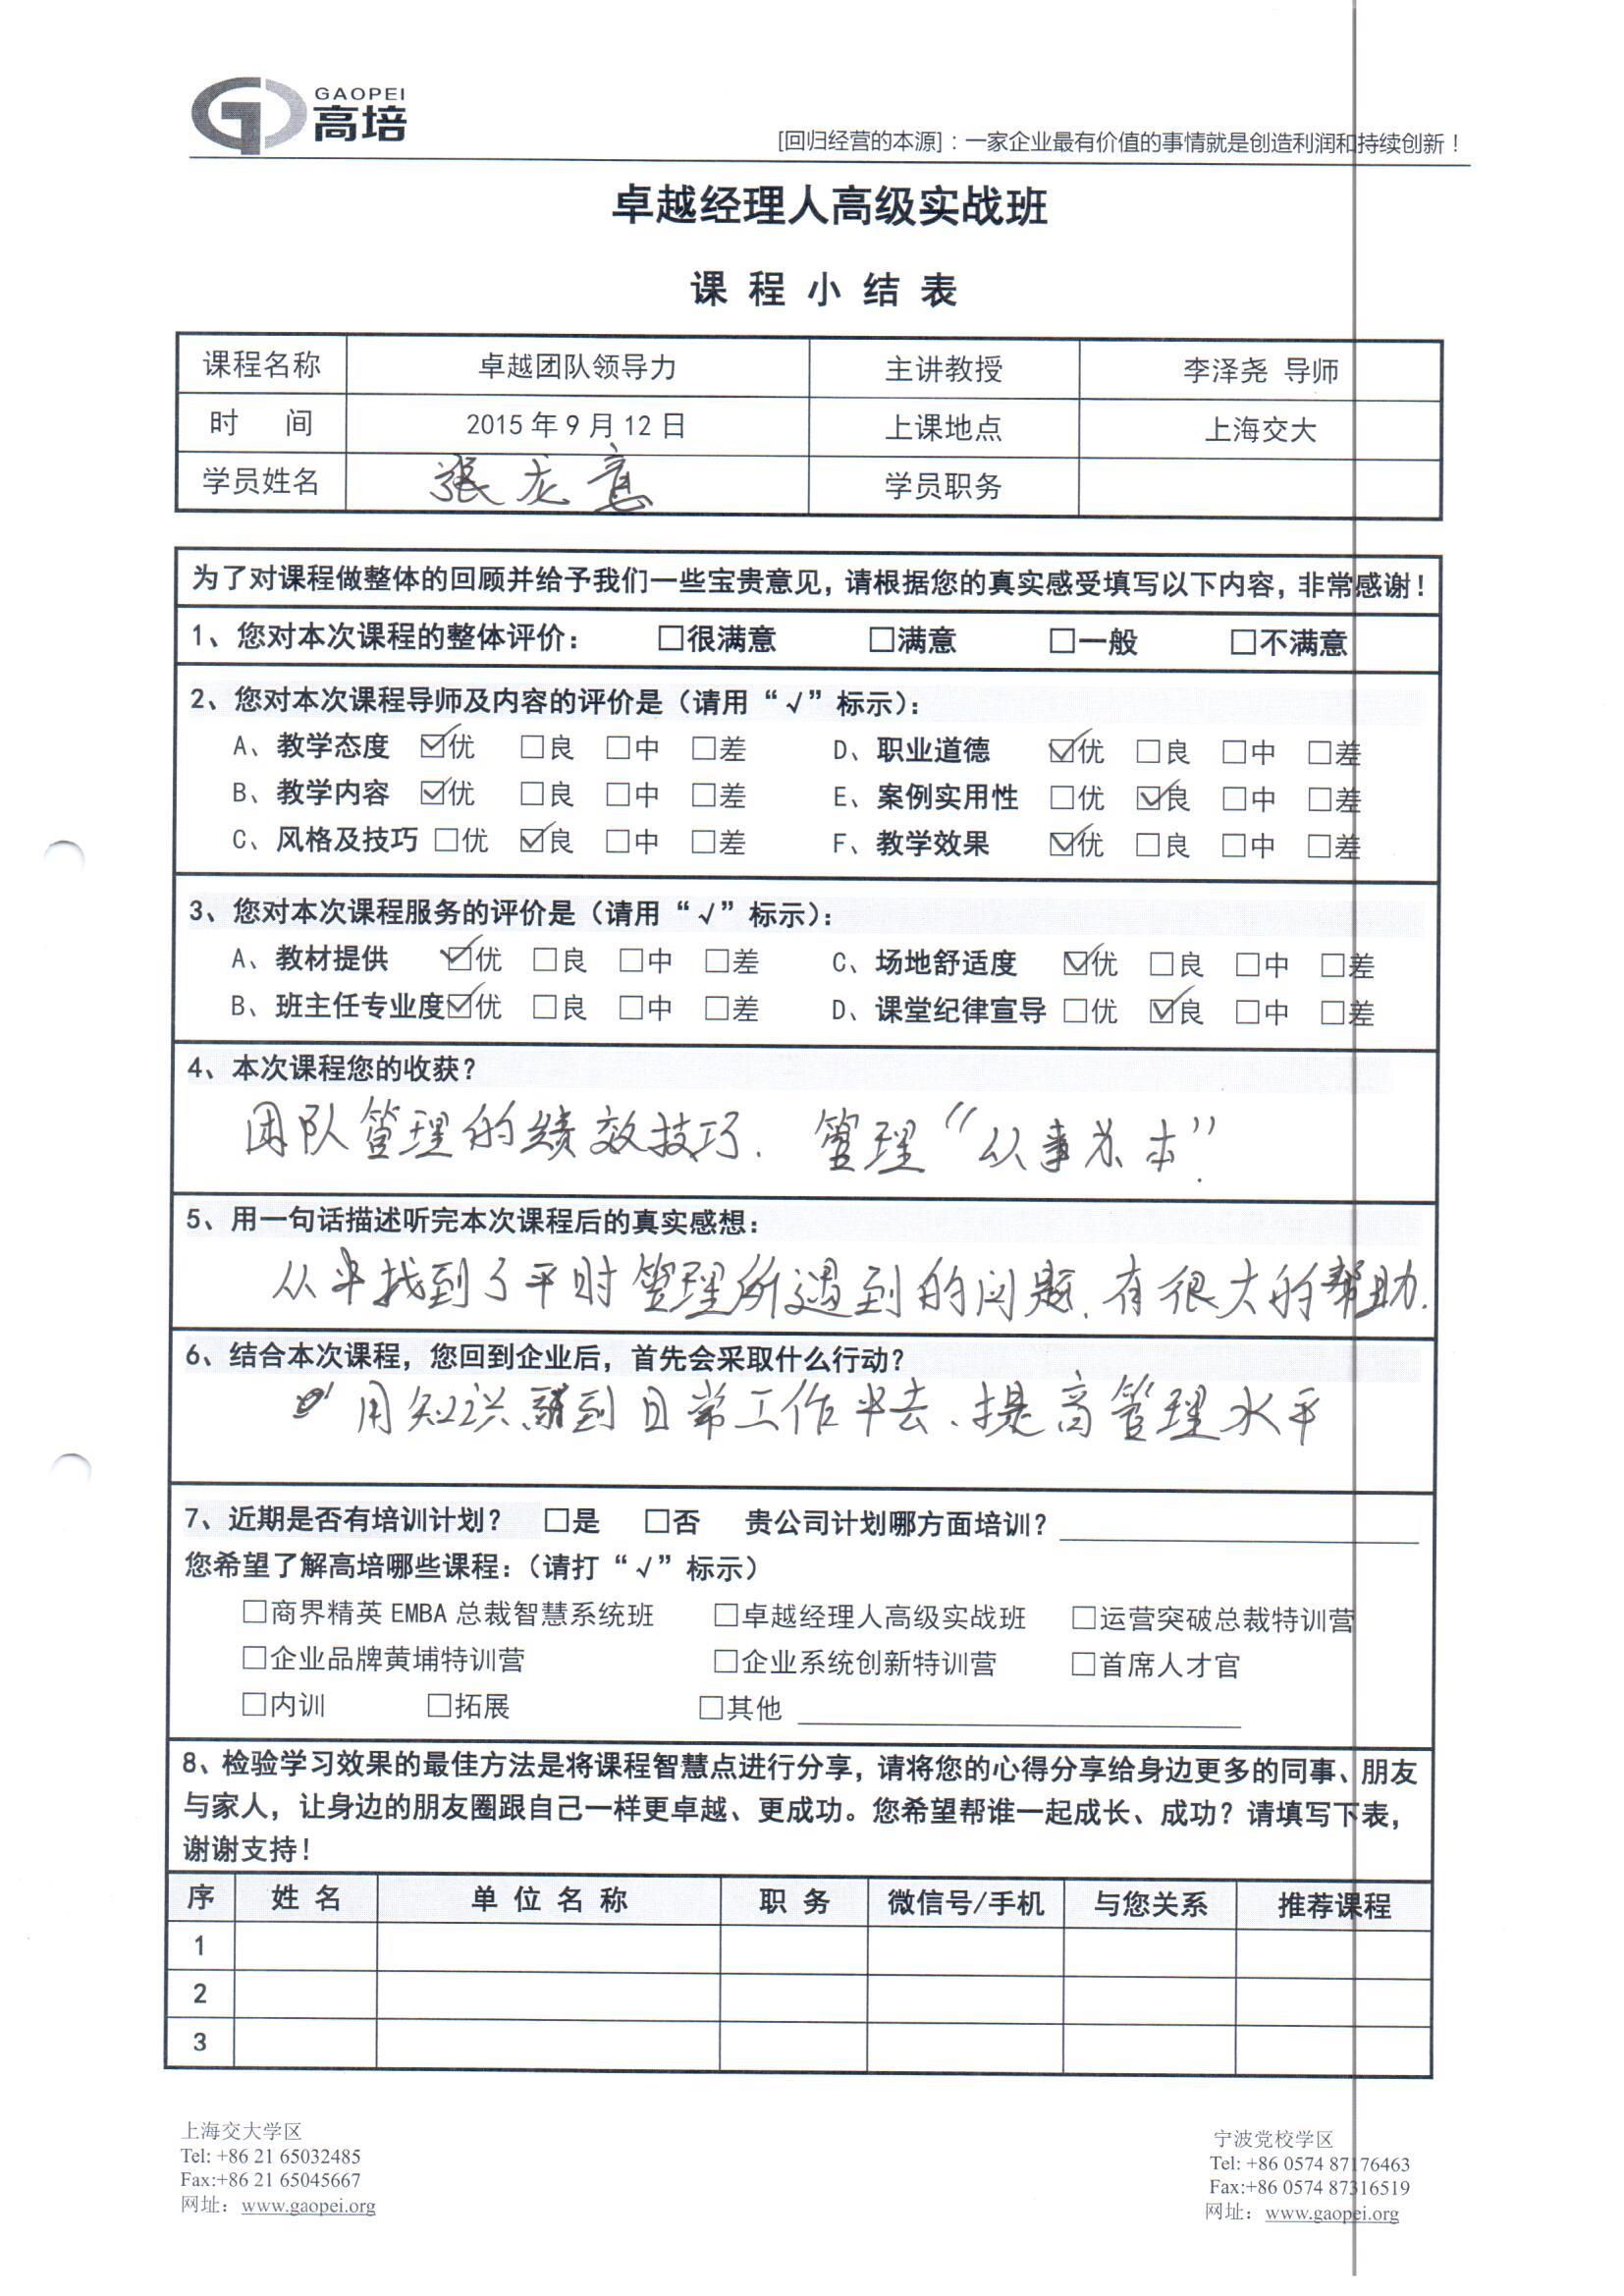 GAOPEI
高培
[回归经营的本源]：一家企业最有价值的事情就是创造利润和持续创新！
卓越经理人高级实战班
课 程 小 结 表
课程名称 卓越团队领导力 主讲教授 李泽尧 导师
时 间 2015 年 9 月 12 日 上课地点 上海交大
学员姓名 张龙意 学员职务
为了对课程做整体的回顾并给予我们一些宝贵意见，请根据您的真实感受填写以下内容，非常感谢！
1、您对本次课程的整体评价： □很满意 □满意 □一般 □不满意
2、您对本次课程导师及内容的评价是（请用“√”标示）：
A、教学态度 ☑优 □良 □中 □差 D、职业道德 ☑优 □良 □中 □差
B、教学内容 ☑优 □良 □中 □差 E、案例实用性 □优 ☑良 □中 □差
C、风格及技巧 □优 ☑良 □中 □差 F、教学效果 ☑优 □良 □中 □差
3、您对本次课程服务的评价是（请用“√”标示）：
A、教材提供 ☑优 □良 □中 □差 C、场地舒适度 ☑优 □良 □中 □差
B、班主任专业度 ☑优 □良 □中 □差 D、课堂纪律宣导 □优 ☑良 □中 □差
4、本次课程您的收获？
团队管理的绩效技巧. 管理“从事为本”.
5、用一句话描述听完本次课程后的真实感想：
从中找到了平时管理所遇到的问题,有很大的帮助.
6、结合本次课程，您回到企业后，首先会采取什么行动？
用知识 到日常工作中去、提高管理水平
7、近期是否有培训计划？ □是 □否 贵公司计划哪方面培训？
您希望了解高培哪些课程：（请打“√”标示）
□商界精英 EMBA 总裁智慧系统班 □卓越经理人高级实战班 □运营突破总裁特训营
□企业品牌黄埔特训营 □企业系统创新特训营 □首席人才官
□内训 □拓展 □其他
8、检验学习效果的最佳方法是将课程智慧点进行分享，请将您的心得分享给身边更多的同事、朋友
与家人，让身边的朋友圈跟自己一样更卓越、更成功。您希望帮谁一起成长、成功？请填写下表，
谢谢支持！
序 姓 名 单 位 名 称 职 务 微信号/手机 与您关系 推荐课程
1
2
3
上海交大学区
Tel: +86 21 65032485
Fax:+86 21 65045667
网址：www.gaopei.org
宁波党校学区
Tel: +86 0574 87176463
Fax:+86 0574 87316519
网址：www.gaopei.org